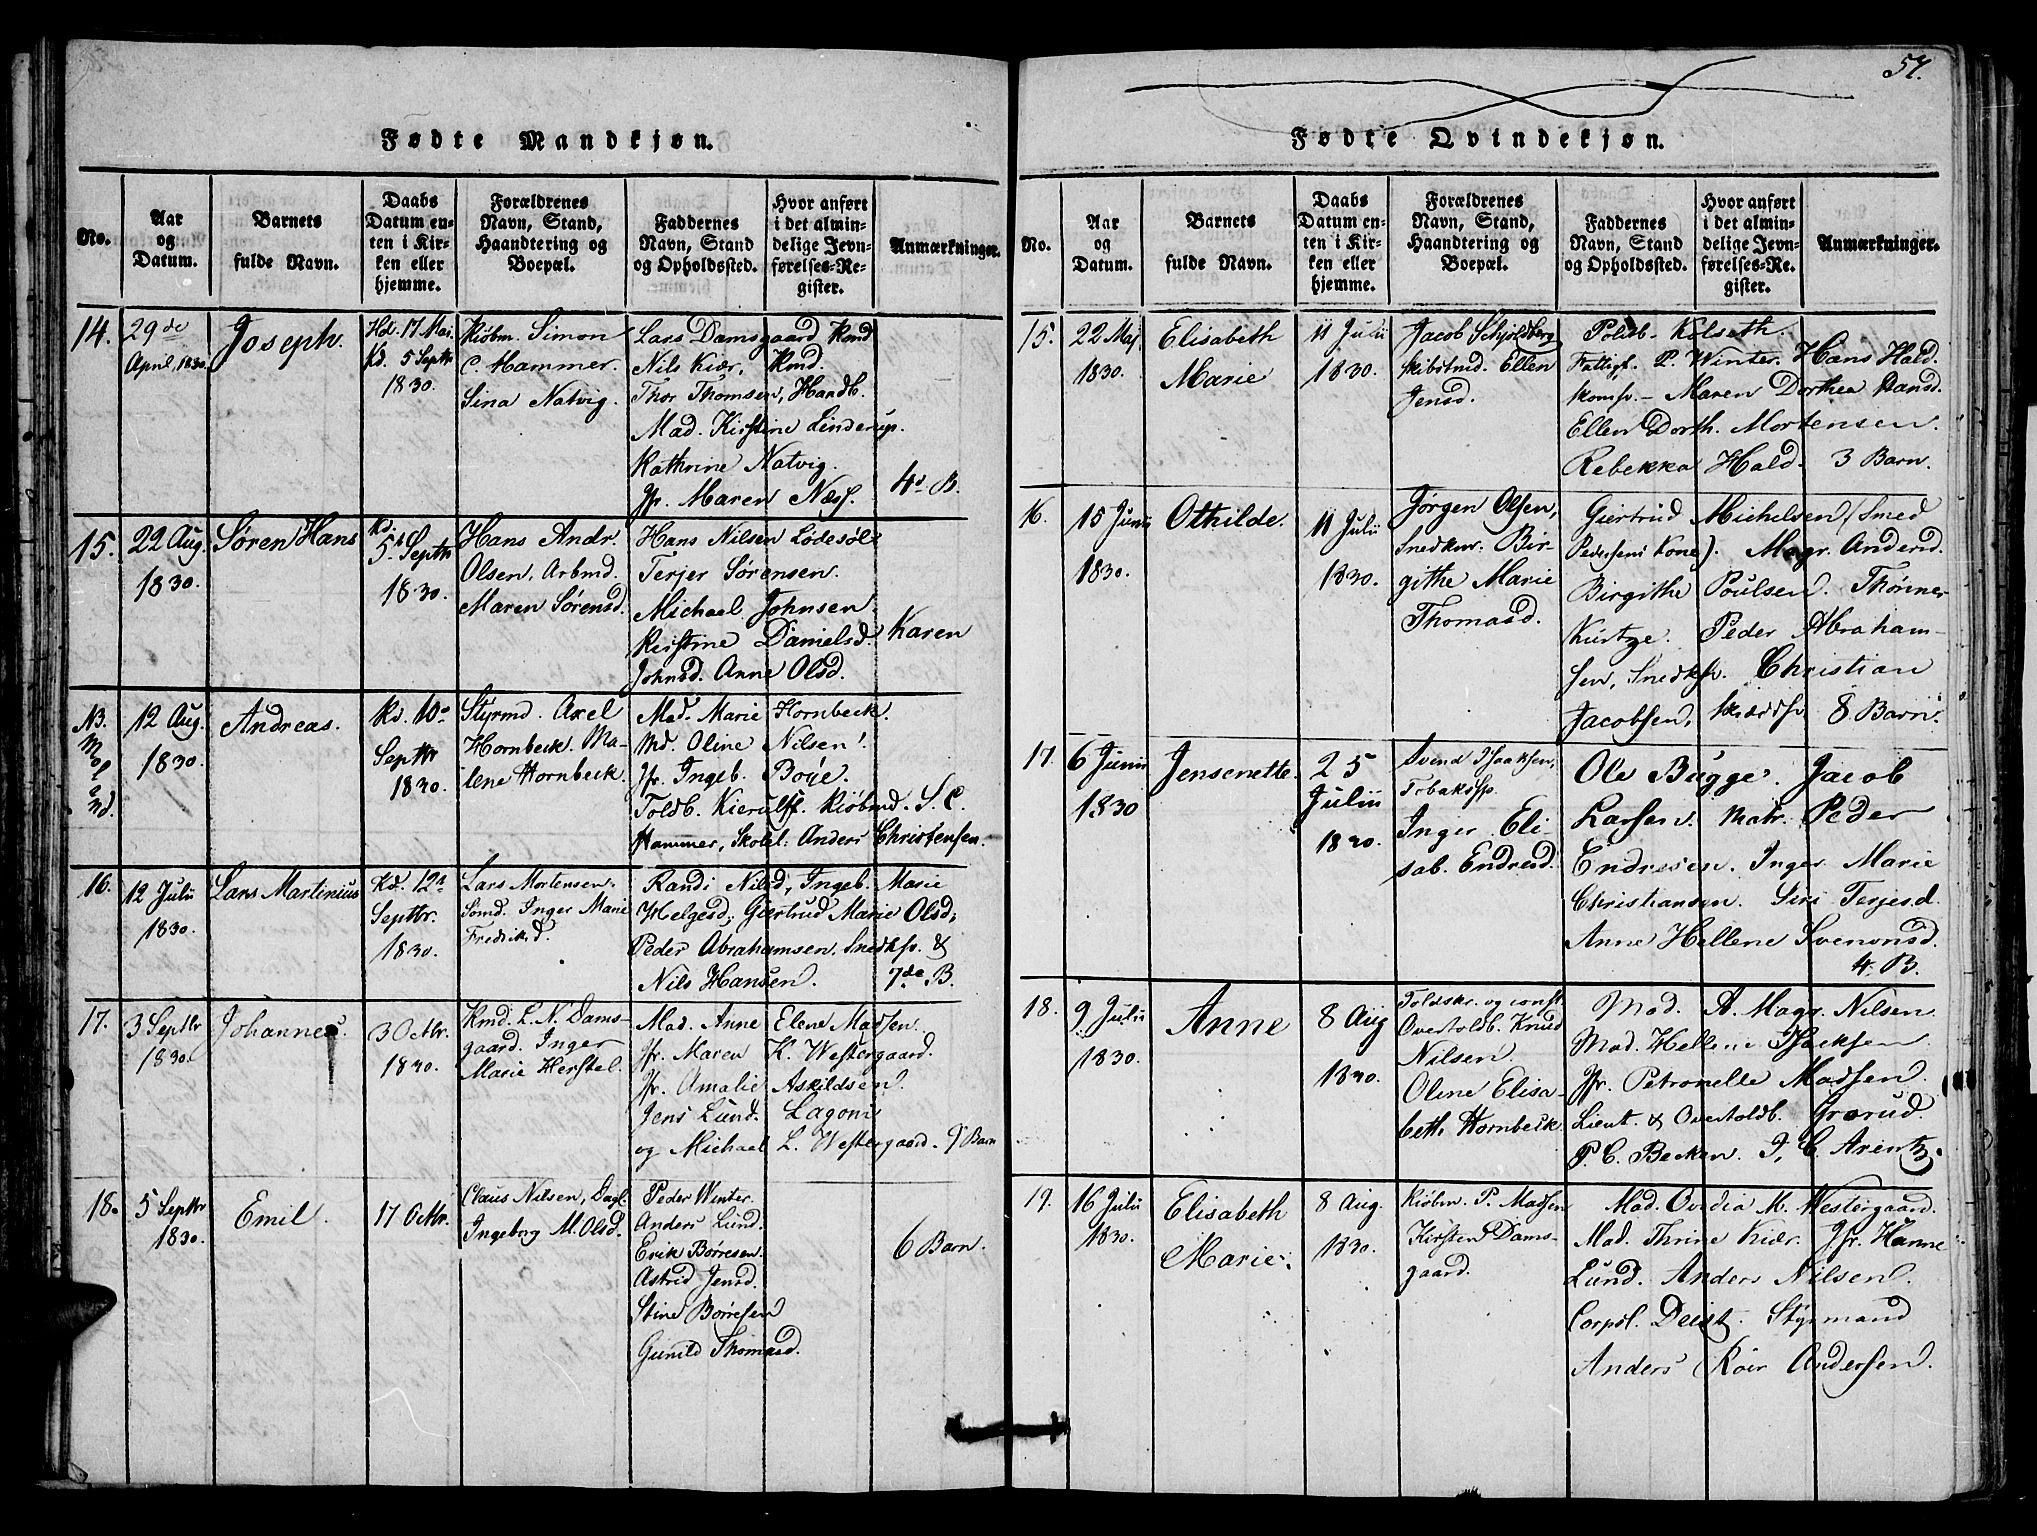 57.
Fødte Mandkjøn.
No.
Aar og Datum.
Barnets fulde Navn.
Daabs Datum enten i Kirken eller hjemme.
Forældrenes Navn, Stand, Haandtering og Boepæl.
Faddernes Navn, Stand og Opholdssted.
Hvor anført i det almindelige Jevnførelses-Register.
Anmærkninger.
14.
29de
April, 1830.
Joseph.
Hd. 17 Mai.
Kd. 5 Septbr
1830.
Kiøbm. Simon
C. Hammer.
Sina Natvig.
Lars Damsgaard Kmd
Nils Kiær, Kmd.
Thor Thomsen, Handb.
Mad. Kirstine Linderup.
Kathrine Natvig.
Jfr. Maren Næss.
4d B.
15.
22 Aug.
1830.
Søren Hans
Kd.
5t Septbr
1830.
Hans Andr.
Olsen. Arbmd.
Maren Sørensd.
Hans Nilsen Lødesøl
Terjer Sørensen.
Michael Johnsen
Kirstine Danielsd. Karen
Johnsd. Anne Olsd.
NB.
12 Aug.
1830.
Andreas.
Kd. 10e
Septbr
1830.
Styrmd. Axel
Hornbeck. Ma-
lene Hornbeck.
Mad. Marie Hornbeck.
Md. Oline Nilsen.
Jfr. Ingeb. Boye.
Toldb. Kierulff. Kiøbmd. S. C.
Hammer, Skolel: Anders Christensen.
16.
12 Julii
1830.
Lars Martinius
Kd. 12e
Septbr.
1830.
Lars Mortensen.
Sømd. Inger Marie
Fredriksd.
Randi Nilsd, Ingeb. Marie
Helgesd; Giertrud Marie Olsd;
Peder Abrahamsen. Snedksv. &
Nils Hansen. 7de B.
17.
3 Septbr
1830.
Johannes.
3 Octbr.
1830.
Kmd. L. N. Dams-
gaard. Inger
Marie Herstel.
Mad. Anne Elene Madsen.
Jfr. Maren K. Westergaard.
Jfr. Amalie Askildsen.
Jens Lund. Lagoni
og Michael L. Westergaard. 9 Barn
18.
5 Septbr
1830.
Emil.
17 Octbr.
Claus Nilsen, Dagl.
Ingeborg M. Olsd.
Peder Winter.
Anders Lund.
Erik Børresen.
Astrid Jensd.
Stine Børresen
Gunild Thomasd.
6 Barn.
Fødte Qvindekjøn.
No.
Aar og Datum.
Barnets fulde Navn.
Daabs Datum enten i Kirken eller hjemme.
Forældrenes Navn, Stand, Haandtering og Boepæl.
Faddernes Navn, Stand og Opholdssted.
Hvor anført i det almindelige Jevnførelses-Register.
Anmærkninger.
15.
22 Maj
1830.
Elisabeth
Marie
11 Julii
1830.
Jacob Schjoldberg
skibstmd. Ellen
Jensd.
Politb. Kilseth.
Fattigf. P. Winter. Hans Hald.
Maren Dorthea Hansd.
Ellen Dorth. Mortensen.
Rebekka Hald. 3 Barn.
16.
15 Junii
1830.
Othilde.
11 Julii
1830.
Jørgen Olsen,
Snedker. Bir-
githe Marie
Thomasd.
Giertrud Michelsen (Smed
Pedersens Kone). Magr. Andersd.
Birgithe Poulsen.
Kurtze. Peder Abraham-
sen, Snedksv. Christian
Jacobsen, 8 Barn.
17.
6 Junii
1830
Jensenette.
25
Julii
1830.
Svend Isaaksen,
Tobakssp.
Inger Eli-
sab. Endresd.
Ole Bugge. Jacob
Larsen. Matr. Peder
Endresen. Inger Marie
Christiansen. Siri Terjesd.
Anne Hellene Svenonsd.
4. B.
18.
9 Julii
1830.
Anne
8 Aug
1830.
Toldskr. og const.
Overtoldb. Knud
Nilsen.
Oline Elisa-
beth Hornbeck.
Mad. A. Magr. Nilsen
Mad. Hellene Isaksen
Jfr. Petronelle Madsen.
Lieut. & Overtoldb. Grøerud.
P. C. Becken. J. C. Arentz.
19.
16 Julii
1830.
Elisabeth
Marie.
8 Aug.
1830.
Kiøbm. P. Madsen
Kirsten Dams-
gaard.
Mad. Ovidia M. Westergaard.
Mad. Thrine Kiær. Jfr. Hanne
Lund. Anders Nilsen.
Corpol. Deist. Styrmand
Anders Röer Andersen.